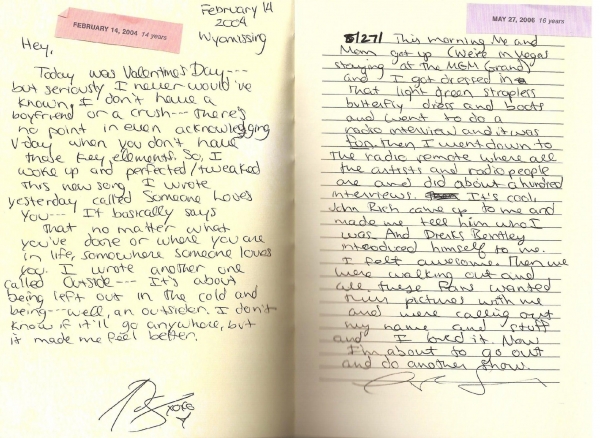 FEBRUARY 14, 2004 14 years
February 14
2004
Wyomissing
Hey,
Today was Valentine's Day---
but seriously I never would've
known. I don't have a
boyfriend or a crush--- There's
no point in even acknowledging
V-day when you don't have
those key elements. So, I
woke up and perfected/tweaked
this new song I wrote
yesterday called Someone Loves
You--- It basically says
that no matter what
you've done or where you are
in life, somewhere someone loves
you. I wrote another one
called Outside--- It's about
being left out in the cold and
being---well, an outsider. I don't
know if it'll go anywhere, but
it made me feel better.
xoxo
MAY 27, 2006 16 years
5/27/ This morning Me and
Mom got up (we're in Vegas
staying at the MGM Grand)
and I got dressed in
that light green strapless
butterfly dress and boots
and went to do a
radio interview and it was
fun. Then I went down to
the radio remote where all
the artists and radio people
are and did about a hundred
interviews. It's cool,
John Rich came up to me and
made me tell him who I
was. And Dierks Bentley
introduced himself to me.
I felt awesome. Then we
were walking out and
all these fans wanted
their pictures with me
and were calling out
my name and stuff
and I loved it. Now
I'm about to go out
and do another show.